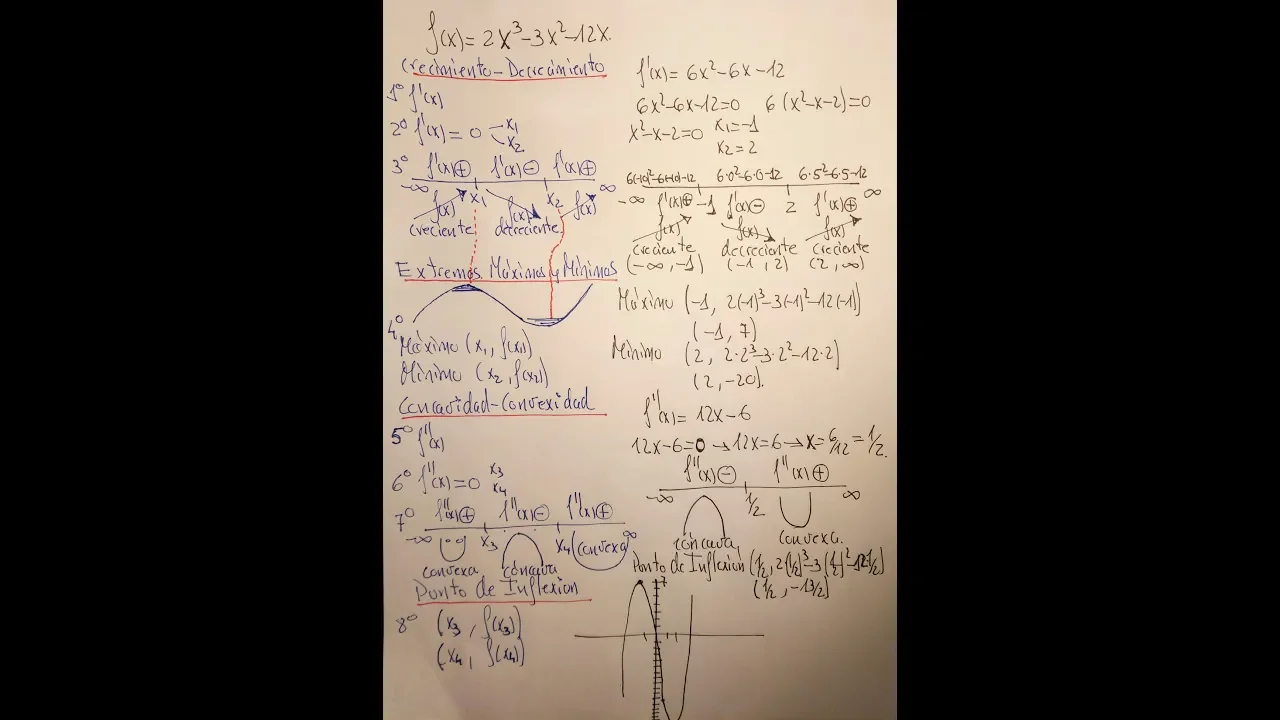 f(x) = 2x³-3x²-12x.
Crecimiento-Decrecimiento
1º f'(x)
2º f'(x) = 0 x₁
x₂
3º f'(x)⊕ f'(x)⊖ f'(x)⊕
-∞ x₁ x₂ ∞
f(x) f(x) f(x)
creciente decreciente
Extremos. Máximos y Mínimos
4º
Máximo (x₁, f(x₁))
Mínimo (x₂, f(x₂))
Concavidad-Convexidad
5º f''(x)
6º f''(x) = 0 x₃
x₄
7º f''(x)⊕ f''(x)⊖ f''(x)⊕
-∞ x₃ x₄ convexa ∞
convexa cóncava
Punto de Inflexion
8º (x₃, f(x₃))
(x₄, f(x₄))
f'(x) = 6x²-6x-12
6x²-6x-12=0 6(x²-x-2)=0
x²-x-2=0 x₁=-1
x₂=2
6(-10)²-6(-10)-12 6·0²-6·0-12 6·5²-6·5-12
-∞ f'(x)⊕ -1 f'(x)⊖ 2 f'(x)⊕ ∞
f(x) f(x) f(x)
creciente decreciente creciente
(-∞, -1) (-1, 2) (2, ∞)
Máximo (-1, 2(-1)³-3(-1)²-12(-1))
(-1, 7)
Mínimo (2, 2·2³-3·2²-12·2)
(2, -20).
f''(x) = 12x-6
12x-6=0 → 12x=6 → x=6/12=1/2.
f''(x)⊖ f''(x)⊕
-∞ 1/2 ∞
cóncava, convexa.
Punto de Inflexion (1/2, 2(1/2)³-3(1/2)²-12·1/2)
(1/2, -13/2)
7